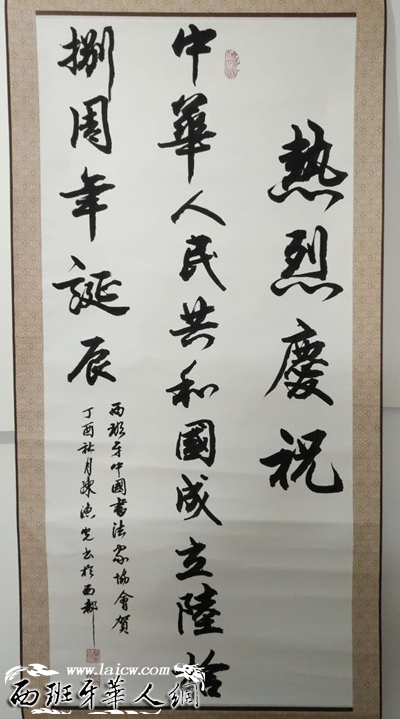 熱烈慶祝
中華人民共和國成立陸拾
捌周年誕辰
西班牙中國書法家協會賀
丁酉秋月陳漁光書於西都
www.laicw.com
西班牙華人網